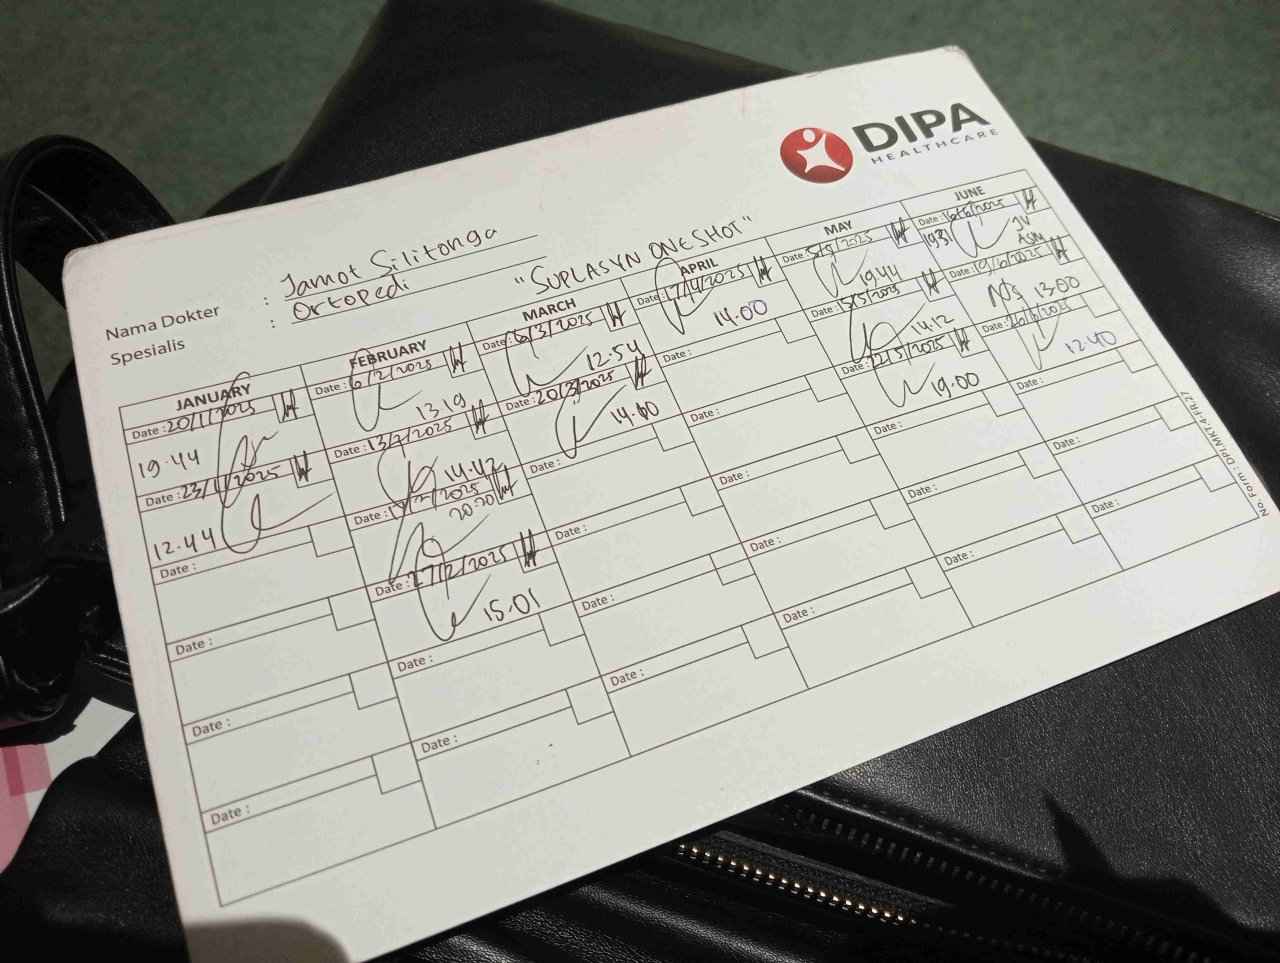 DIPA
HEALTHCARE
Nama Dokter : Jamot Silitonga
Spesialis : Ortopedi
"SUPLASYN ONE SHOT"
JANUARY
Date : 20/1/2025
19.44
Date : 23/1/2025
12.44
Date :
Date :
Date :
Date :
FEBRUARY
Date : 6/2/2025
13.19
Date : 13/2/2025
14.42
Date : /2/2025
20.20
Date : 27/2/2025
15.01
Date :
Date :
MARCH
Date : 6/3/2025
12.54
Date : 20/3/2025
14.00
Date :
Date :
Date :
Date :
APRIL
Date : 17/4/2025
14.00
Date :
Date :
Date :
Date :
Date :
MAY
Date : 5/5/2025
19.44
Date : 15/5/2025
14.12
Date : 22/5/2025
19.00
Date :
Date :
Date :
JUNE
Date : 16/6/2025
19.31
JV
ASM
Date : 19/6/2025
13.00
Date : 26/6/2025
12.40
Date :
Date :
Date :
No. Form : DPI.MKT-4-FR.27